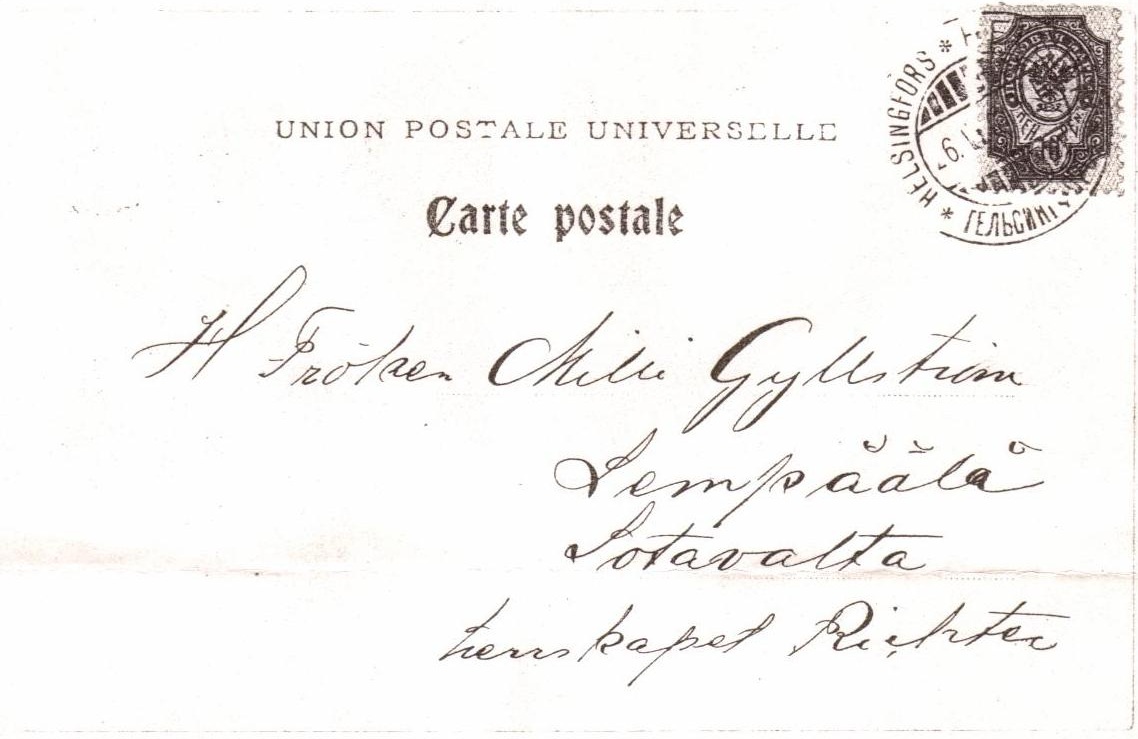 UNION POSTALE UNIVERSELLE
Carte postale
HELSINGFORS
6.
H Fröken Milli Gyllström
Lempäälä
Sotavalta
herrskapet Richter